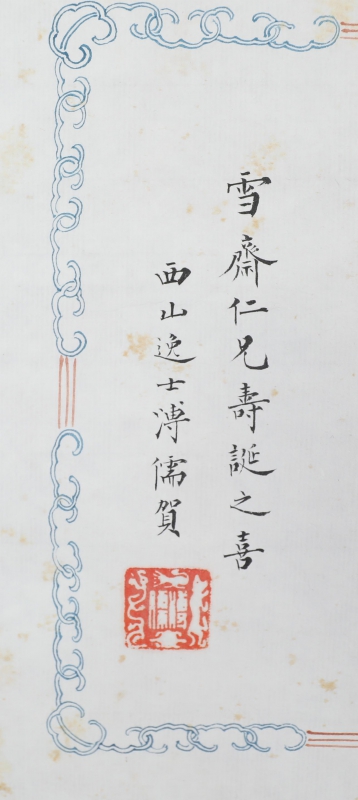 雪齋仁兄壽誕之喜
西山逸士溥儒賀